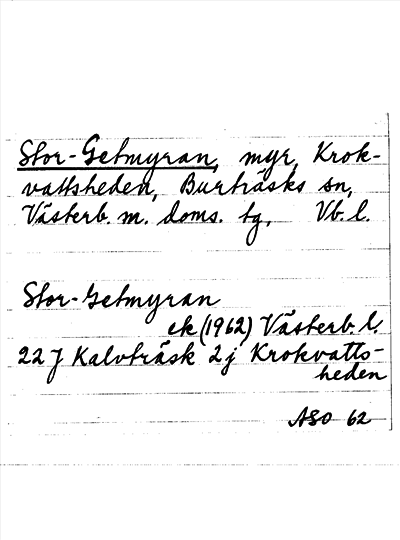 Stor-Getmyran, myr, Krok-
vattsheden, Burträsks sn,
Västerb. m. doms. tg, Vb. l.
Stor-Getmyran
ek (1962) Västerb. l.
22 J Kalvträsk 2 j Krokvatts-
heden
ASO 62